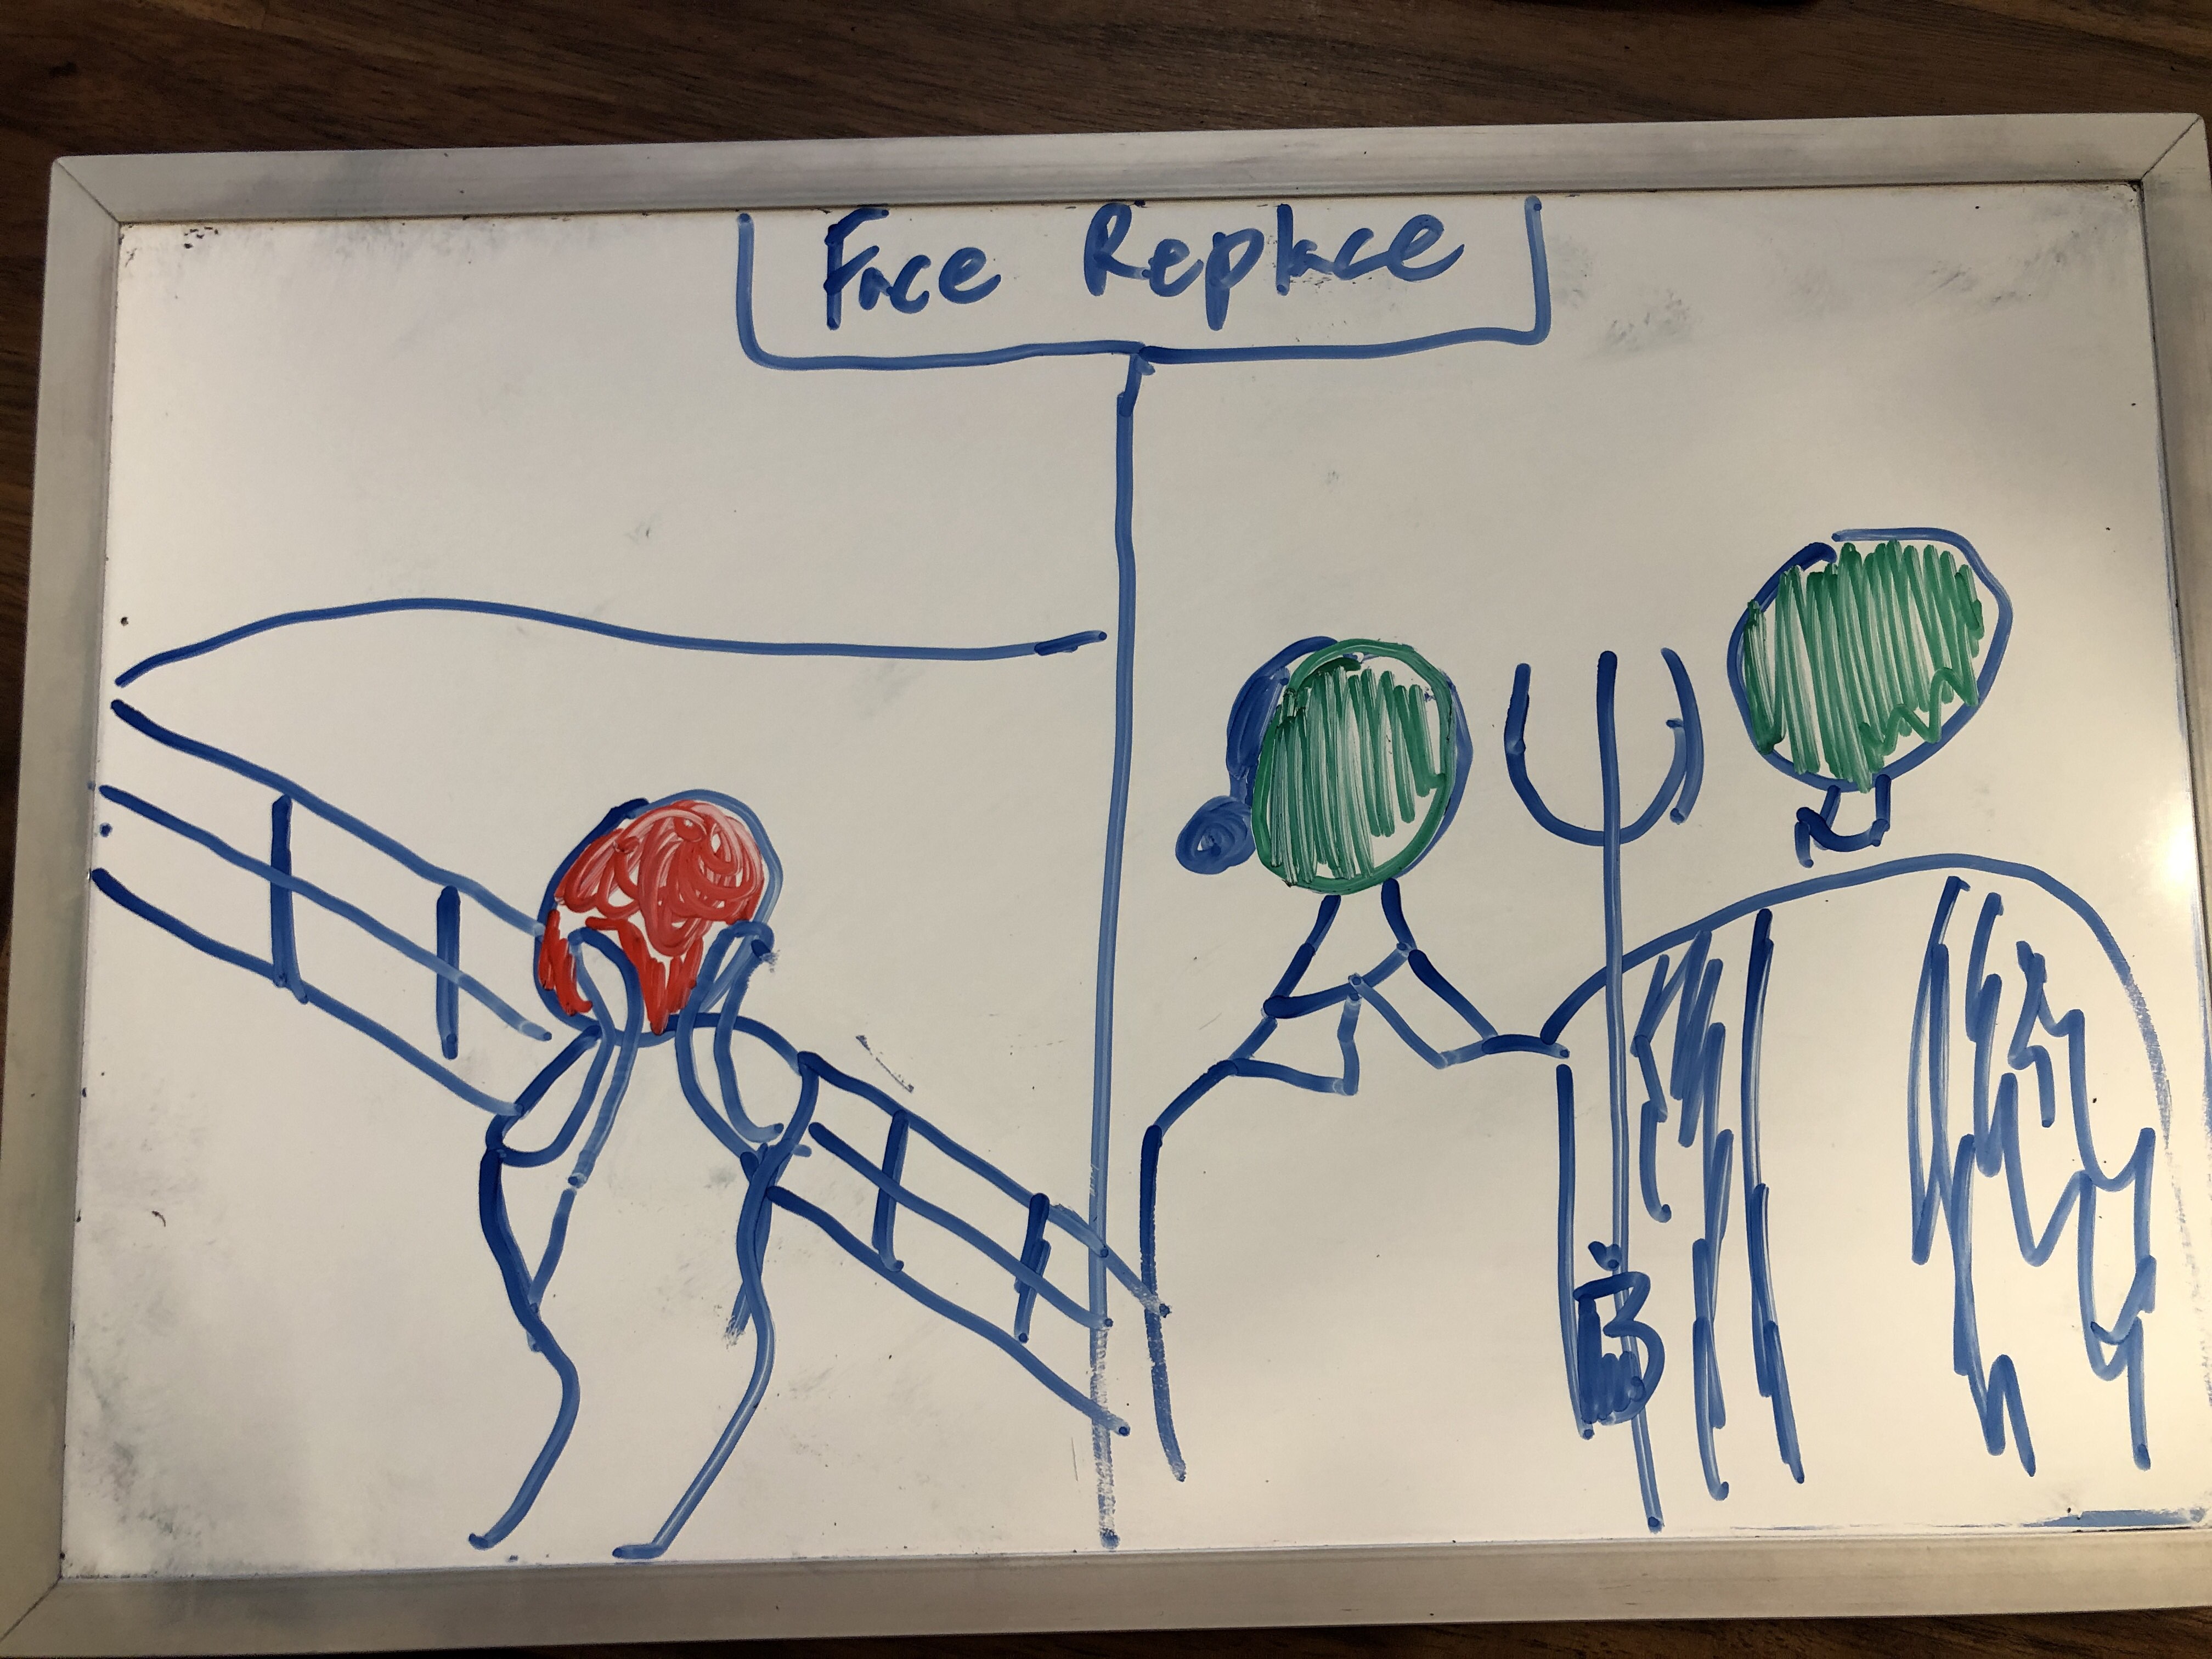 Face Replace